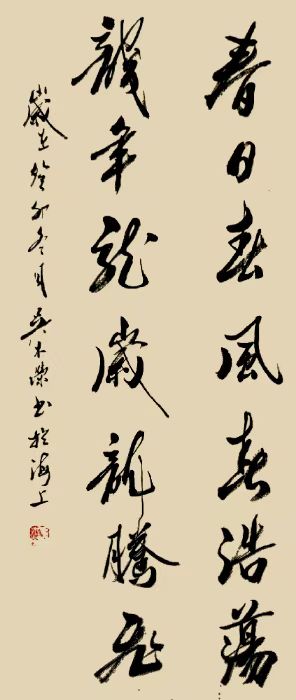 春日春風春浩蕩
龍年龍歲龍騰飛
歲在癸卯冬月吳木榮書於海上